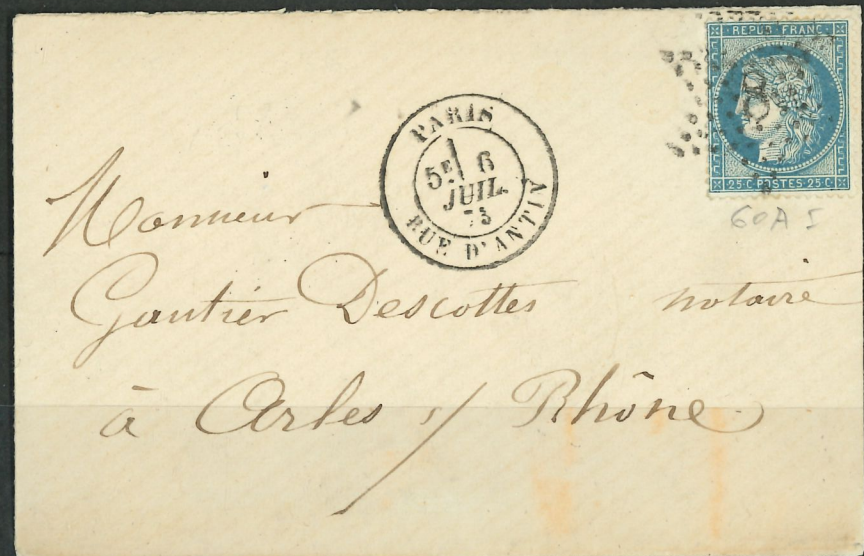 REPUB FRANC
25 C POSTES 25 C
60A I
PARIS
5E 6
JUIL.
75
RUE D'ANTIN
Monsieur
Gautier Descottes notaire
à Arles s/ Rhône